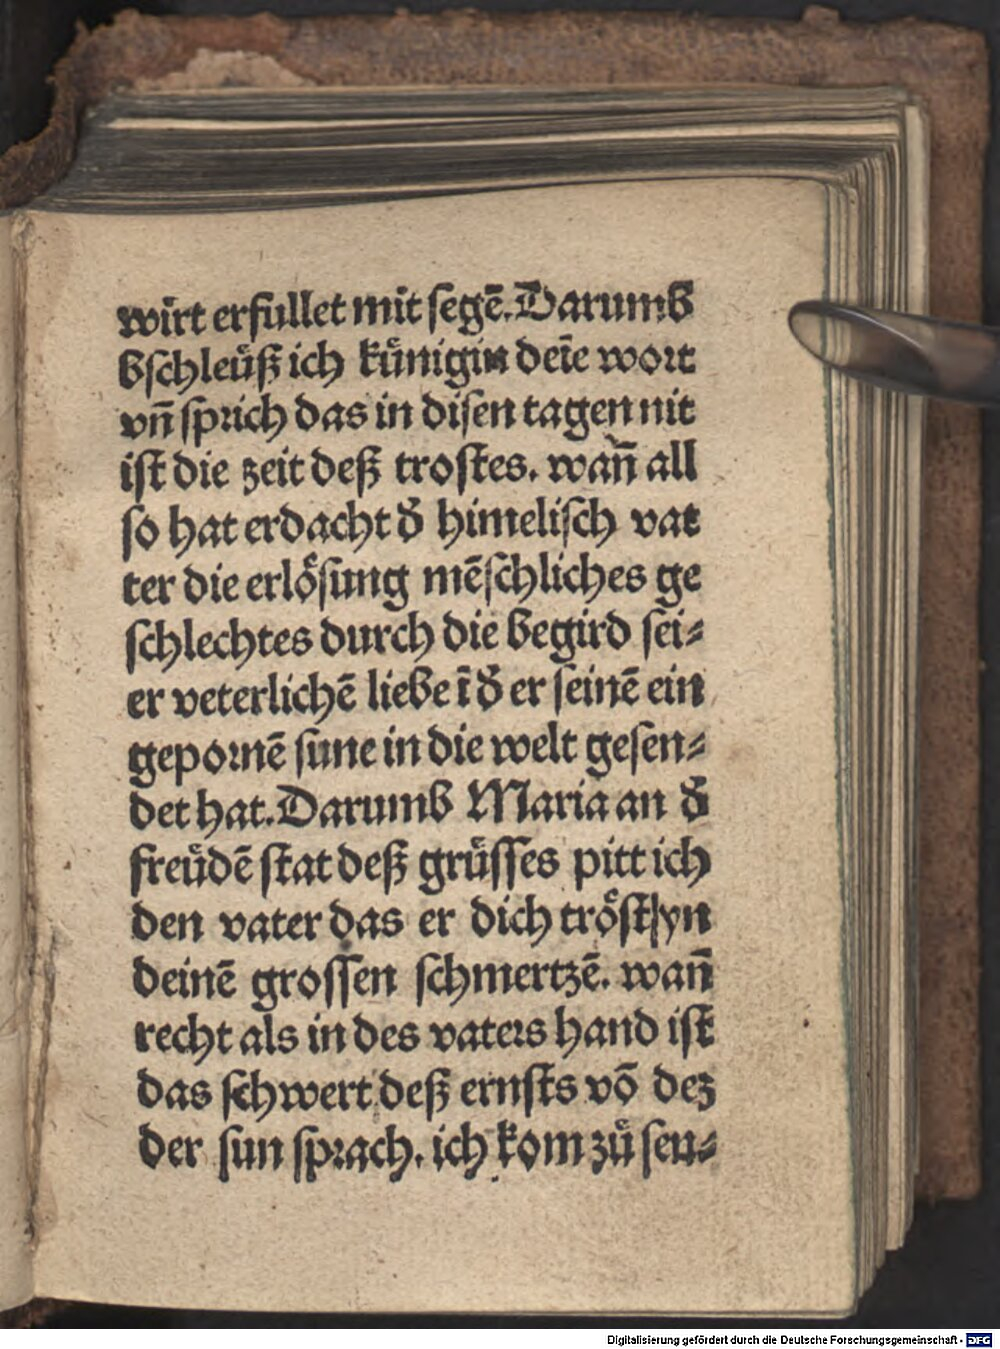 wirt erfullet mit segē. Darumb
bschleüß ich künigin deīe wort
vñ sprich das in disen tagen nit
ist die zeit deß trostes. wañ all
so hat erdacht d̄ himelisch vat
ter die erlösung mēschliches ge
schlechtes durch die begird sei⸗
er veterlichē liebe ī d̄ er seinē ein
gepornē sune in die welt gesen⸗
det hat. Darumb Maria an d̄
freüdē stat deß grüsses pitt ich
den vater das er dich tröst yn
deinē grossen schmertzē. wañ
recht als in des vaters hand ist
das schwert deß ernsts vō dez
der sun sprach. ich kom zů sen⸗
Digitalisierung gefördert durch die Deutsche Forschungsgemeinschaft - DFG